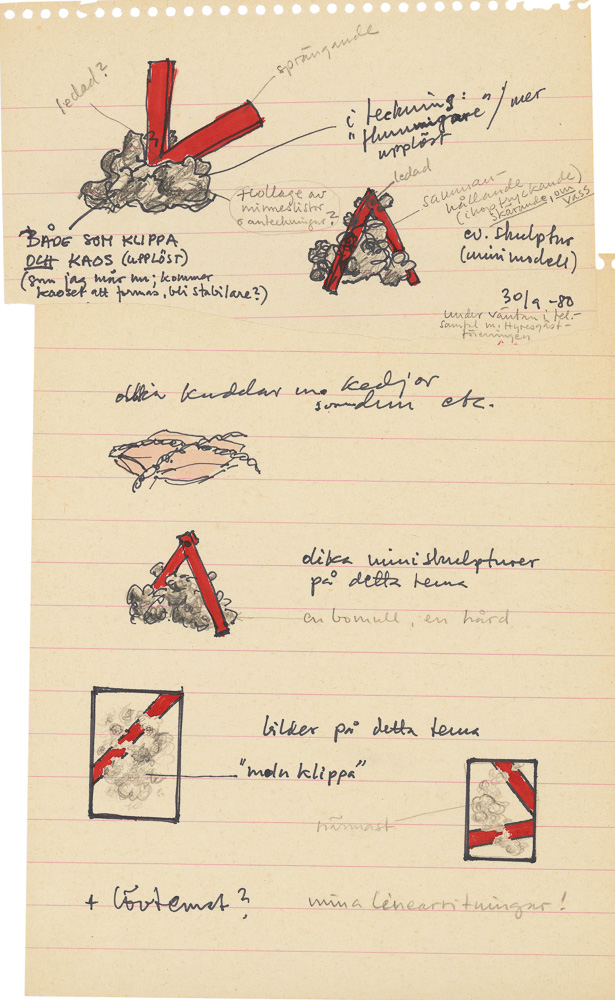 ledad?
sprängande
i teckning:
"tunnigare" / mer
upplöst
Collage av
minneslistor
o anteckningar?
ledad
samman-
hållande
(ihoptryckande)
skärande, om
vass
BÅDE SOM KLIPPA
OCH KAOS (UPPLÖST)
(som jag mår nu; kommer
kaoset att formas, bli stabilare?)
ev. skulptur
(minimodell)
30/9 -80
under väntan i tel.-
samtal m. Hyresgäst-
föreningen
olika kuddar m kedjor
etc.
olika miniskulpturer
på detta tema
en bomull, en hård
bilder på detta tema
"moln klippa"
närmast
+ lövtemat?
mina linearritningar!